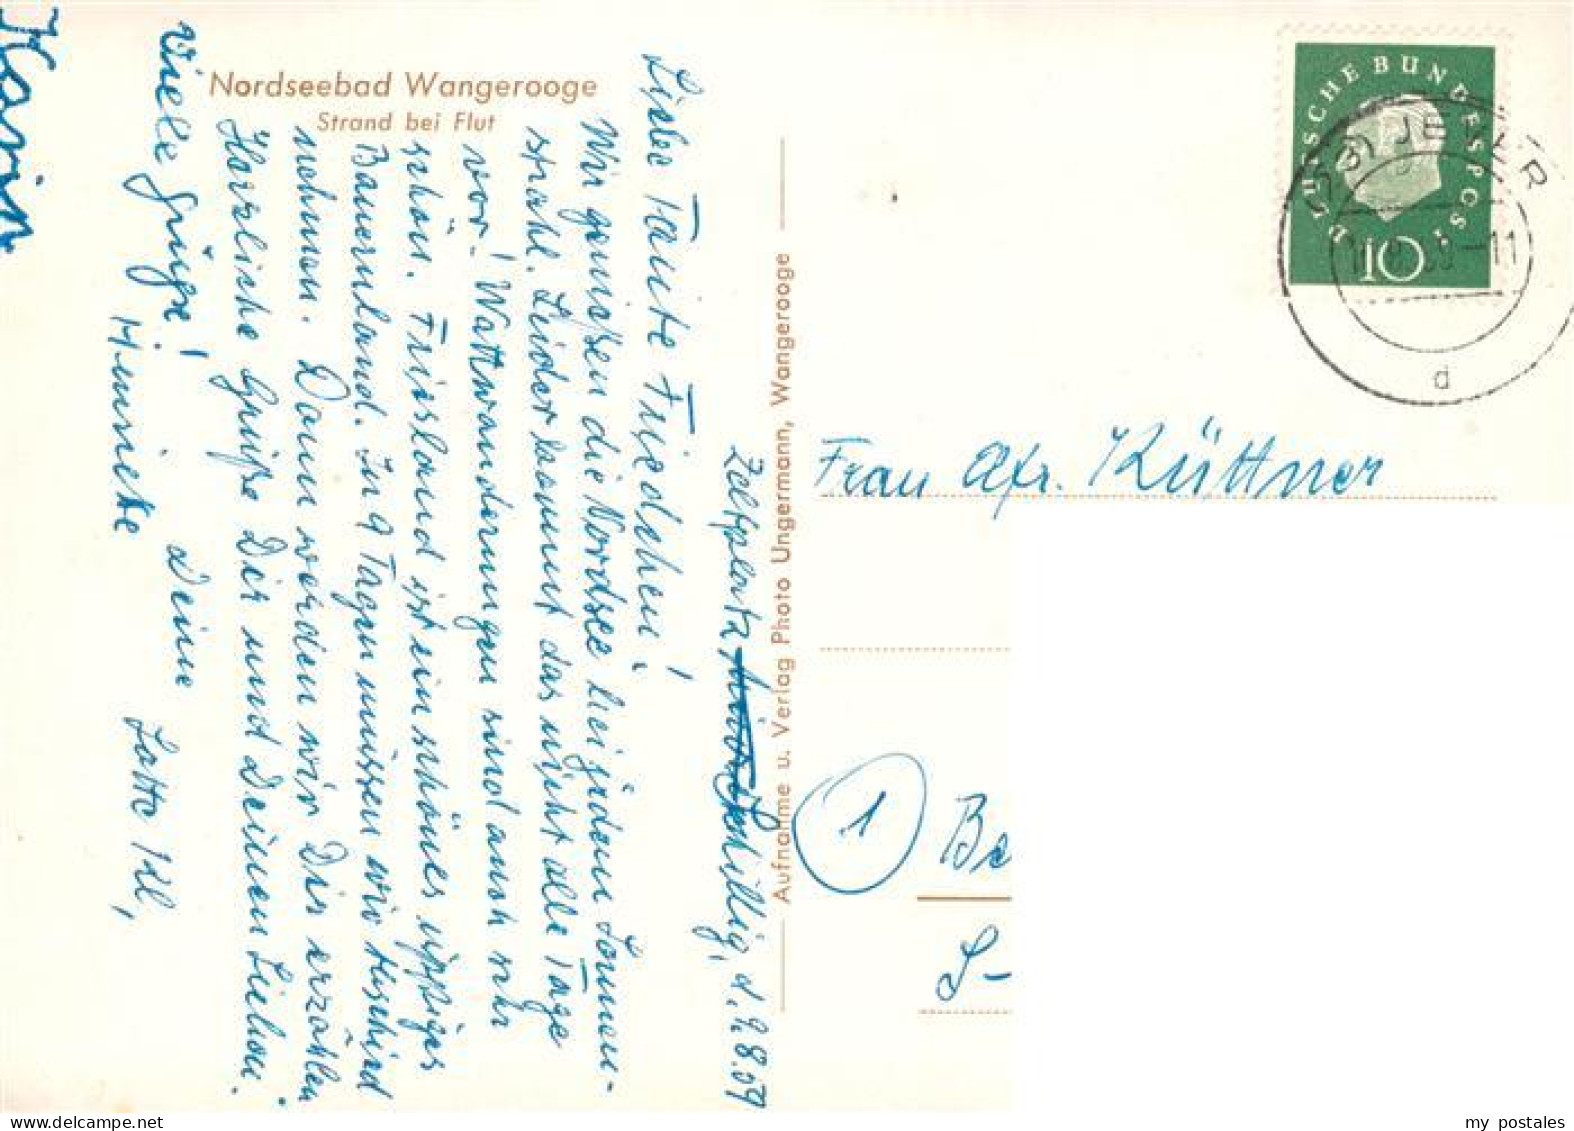 Nordseebad Wangerooge
Strand bei Flut
Zeltplatz Schillig, d. 9.8.59
Liebe Tante Friedchen!
Wir genießen die Nordsee bei jedem Sonnen-
strahl. Leider kommt das nicht alle Tage
vor. Wattwanderungen sind auch sehr
schön. Friesland ist ein schönes üppiges
Bauernland. In 9 Tagen müssen wir Abschied
nehmen. Dann werden wir Dir erzählen.
Herzliche Grüße Dir und Deinen Lieben.
Deine Lotte Kl,
Viele Grüße!
Hinnicke
Karin
Aufnahme u. Verlag Photo Ungermann, Wangerooge
DEUTSCHE BUNDESPOST
10
JEVER
-11
d
Frau Afr. Küttner
1
Be
S-
my postales